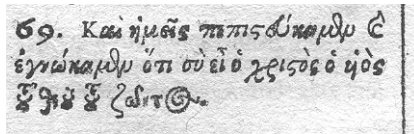 69. Καὶ ἡμεῖς πεπιστεύκαμεν καὶ
ἐγνώκαμεν ὅτι σὺ εἶ ὁ χριστὸς ὁ ὑὸς
τοῦ θεοῦ τοῦ ζῶντος.